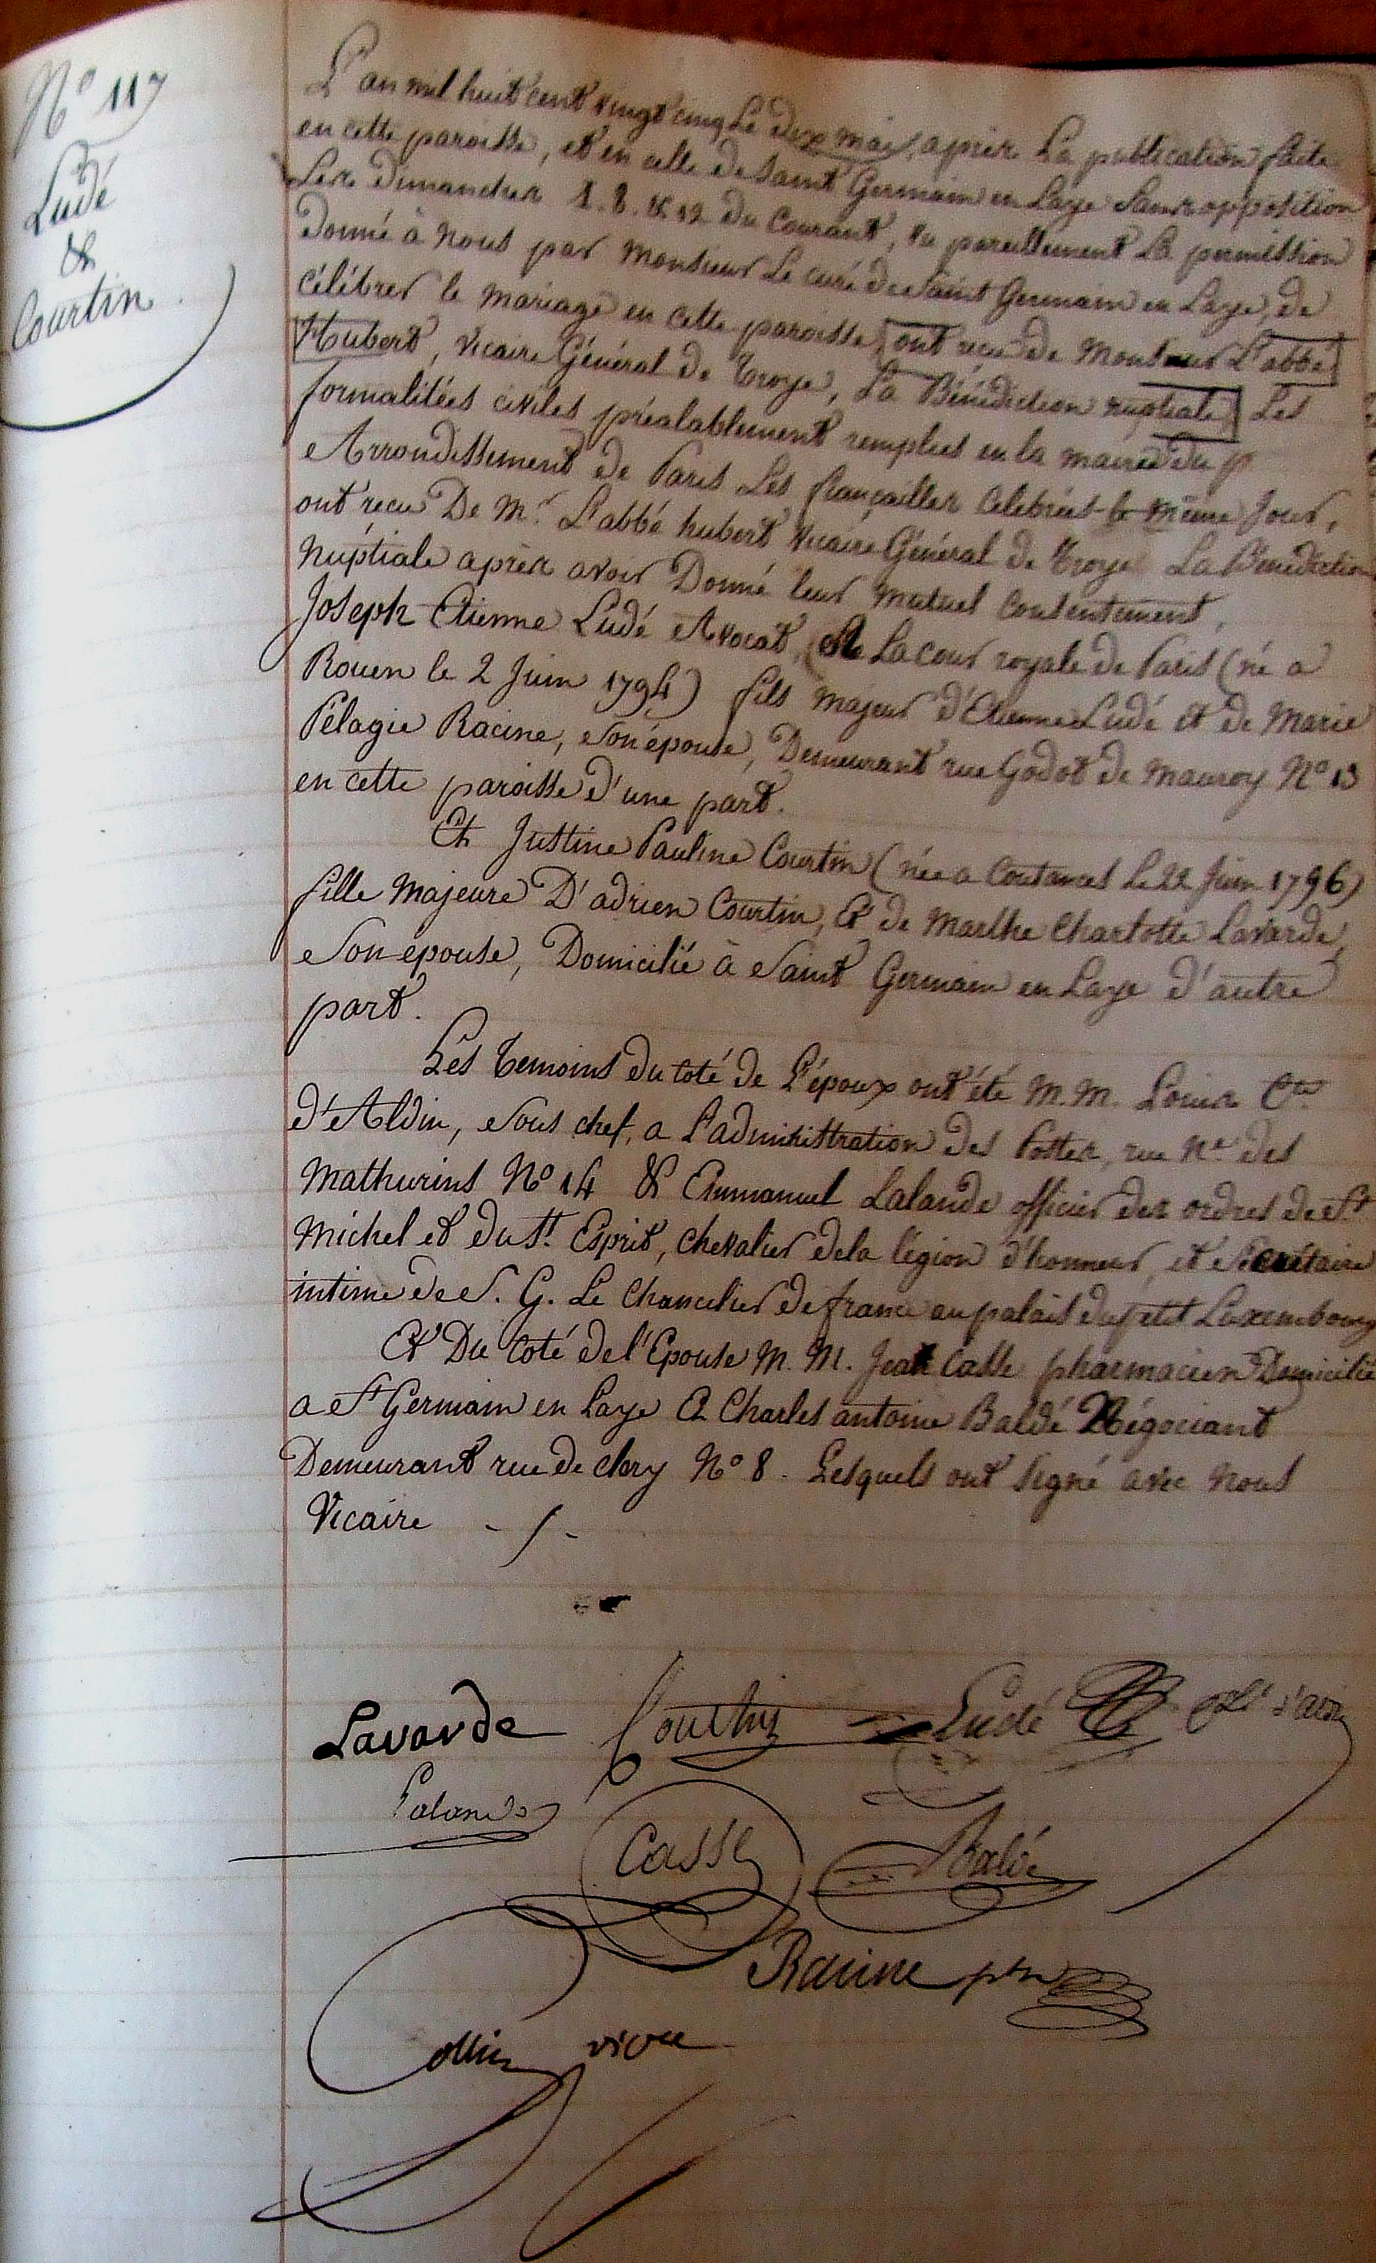 N° 117
Ludé
&
Courtin
L'an mil huit cent vingt cinq Le dix mai, après La publication faite
en cette paroisse, et en celle de Saint Germain en Laye Sans opposition
Les dimanches 1. 8. & 12 du Courant, vu pareillement La permission
Donné à Nous par Monsieur Le curé de Saint Germain en Laye, de
célébrer le mariage en cette paroisse, ont reçu de Monsieur L'abbé
Hubert, Vicaire Général de Troye, La Bénédiction nuptiale, Les
formalitées civiles préalablement remplies en la mairie du
Arrondissement de Paris Les fiançailles Célébrées le même Jour,
ont reçu De Mr. L'abbé hubert Vicaire Général de Troye La Bénédiction
Nuptiale après avoir Donné leur mutuel Consentement,
Joseph Etienne Ludé Avocat, La cour royale de Paris (né a
Rouen le 2 Juin 1794) fils majeur d'Etienne Ludé et de Marie
Pélagie Racine, Son épouse, Demeurant rue Godot de Mauroy N° 13
en cette paroisse d'une part.
Et Justine Pauline Courtin (née a Coutances Le 22 Juin 1796)
fille Majeure D'adrien Courtin, Et de Marthe Charlotte Lavarde,
Son epouse, Domicilié à Saint Germain en Laye d'autre
part.
Les Temoins du coté de L'époux ont été M.M. Louis
d'Aldin, Sous chef, a L'administration des Postes, rue Ne. des
Mathurins N° 14 & Emmanuel Lalande officier des ordres de St
Michel et du St. Esprit, Chevalier dela légion d'honneur, et Secrétaire
intime de S. G. Le Chancelier de france au palais du petit Luxembourg
Et Du Coté de l'Epouse M. M. Jean Casse pharmacien Domicilié
a St Germain en Laye Et Charles antoine Baldé Négociant
Demeurant rue de clery N° 8. Lesquels ont signé avec Nous
Vicaire
Lavarde Courtin Ludé
Lalande
Casse Baldé
Racine ptre
Collin vicre